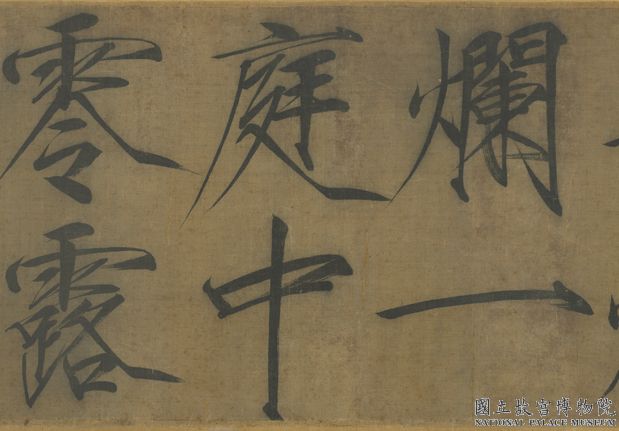 爛一
庭中
零露
國立故宮博物院
NATIONAL PALACE MUSEUM